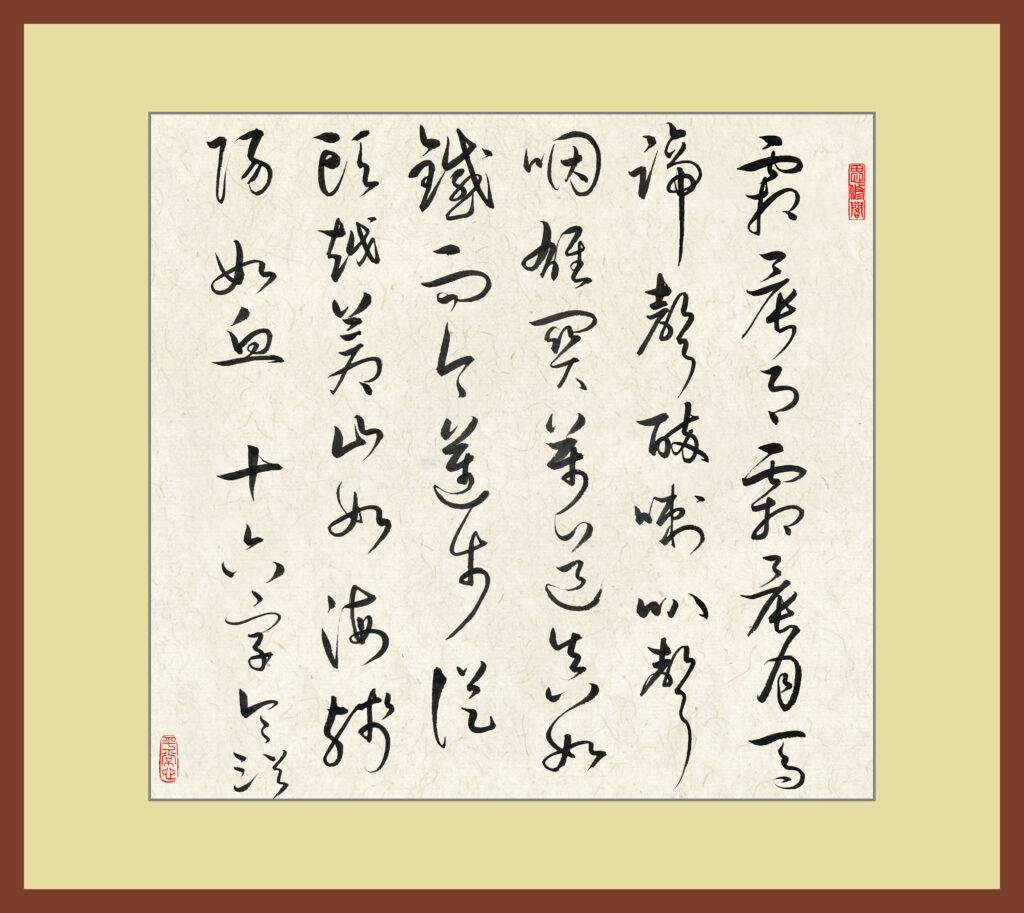 霜晨月霜晨月馬
蹄聲碎喇叭聲
咽雄関萬道真如
鐵而今邁步從
頭越蒼山如海殘
陽如血 十六字令